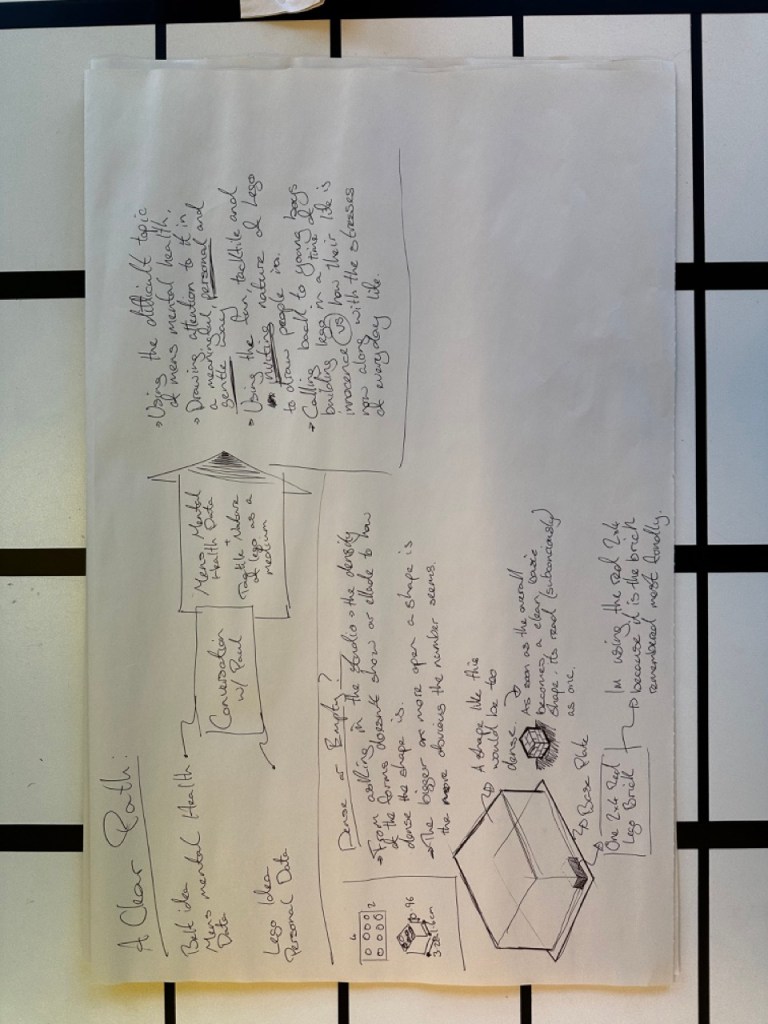 A Clear Path:
Belt idea
Mens mental Health
Data
Lego Idea
Personal Data
Conversation
w/ Paul
Mens Mental
Health Data
+
Tactile Nature
of lego as a
medium
→ Using the difficult topic
of mens mental health.
→ Drawing attention to it in
a meaningful, personal and
gentle way
→ Using the fun, tacktile and
inviting nature of Lego
to draw people in.
→ Calling back to young boys
building lego in a time of
innocence vs how their life is
now along with the stresses
of everyday life.
6
2
9.96
3.2cm
Dense or Empty?
→ From asking in the studio the density
of the forms doesnt show or elude to how
dense the shape is.
→ The bigger or more open a shape is
the more obvious the number seems.
A shape like this
would be too
dense.
As soon as the overall
becomes a clear, basic
shape, its read (subconsciously)
as one.
Base Plate
One 2x4 Red
Lego Brick
Im using the red 2x4
because it is the brick
remembered most fondly.